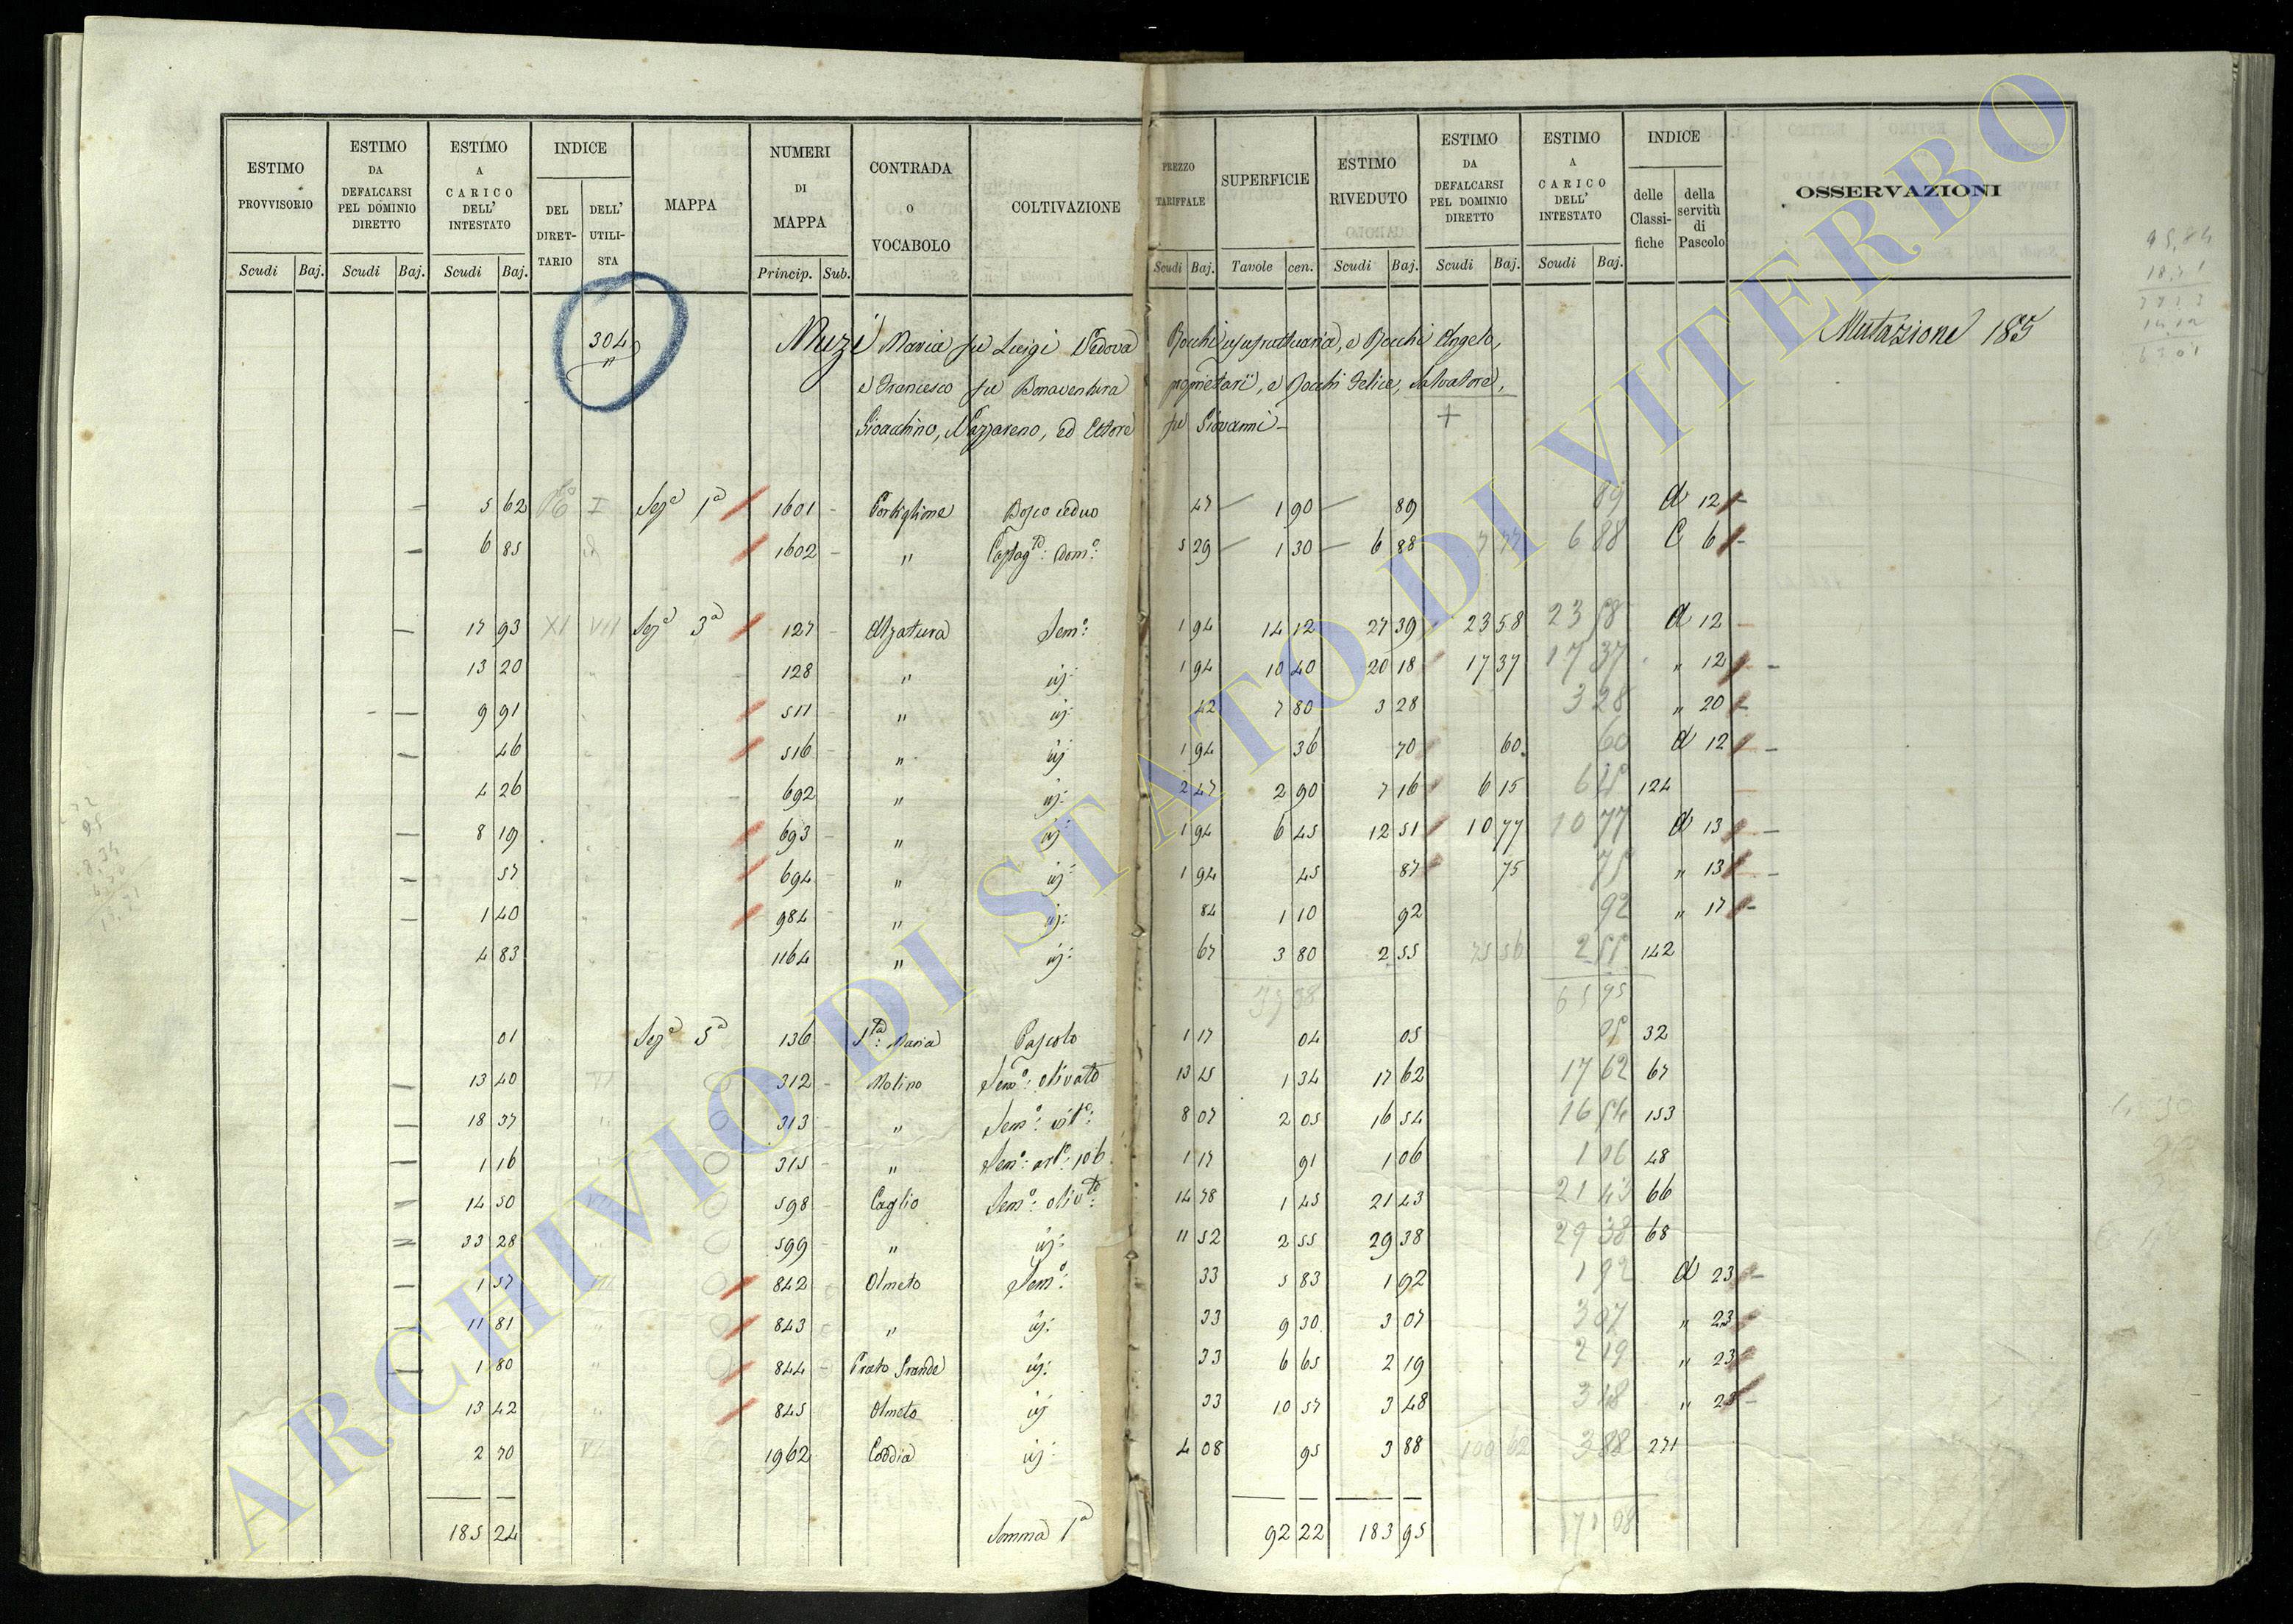 ESTIMO PROVVISORIO Scudi Baj. ESTIMO DA DEFALCARSI PEL DOMINIO DIRETTO Scudi Baj. ESTIMO A CARICO DELL' INTESTATO Scudi Baj. INDICE DEL DIRET- TARIO DELL' UTILI- STA MAPPA NUMERI DI MAPPA Princip. Sub. CONTRADA O VOCABOLO COLTIVAZIONE PREZZO TARIFFALE Scudi Baj. SUPERFICIE Tavole cen. ESTIMO RIVEDUTO Scudi Baj. ESTIMO DA DEFALCARSI PEL DOMINIO DIRETTO Scudi Baj. ESTIMO A CARICO DELL' INTESTATO Scudi Baj. INDICE delle Classi- fiche della servitù di Pascolo OSSERVAZIONI
304 Muzi Maria fu Luigi Vedova Rocchi usufruttuaria, e Rocchi Angelo, Mutazione 185
" e Francesco fu Bonaventura proprietari, e Rocchi Felice, Salvatore,
Gioacchino, Nazzareno, ed Ettore fu Giovanni -
5 62 I Seze 1a 1601 - Bosco ceduo 47 1 90 89 89 d 12
6 85 1602 - " Castagto: Dom: 5 29 1 30 6 88 6 88 C 6
17 93 XI VII Seze 3a 127 - Alzatura Semo: 1 94 14 12 27 39 23 58 23 58 d 12
13 20 128 " id: 1 94 10 40 20 18 17 37 17 37 " 12
9 91 511 " id: 42 7 80 3 28 3 28 " 20
46 516 " id 1 94 36 70 60 60 d 12
4 26 692 " id: 2 47 2 90 7 16 6 15 6 15 124
8 19 693 " id: 1 94 6 45 12 51 10 77 10 77 d 13
57 694 " id: 1 94 45 87 75 75 " 13
1 40 984 " id: 84 1 10 92 92 " 17
4 83 1164 " id: 67 3 80 2 55 75 56 2 55 142
65 95
01 Seze 5a 136 Sta: Maria Pascolo 1 17 04 05 05 32
13 40 VI 312 - Molino Semo: olivato 13 15 1 34 17 62 17 62 67
18 37 " 313 - " Semo: vito: 8 07 2 05 16 54 16 54 153
1 16 315 - " 1 17 91 1 06 1 06 48
14 50 598 - Caglio Semo: olivto: 14 78 1 45 21 43 21 43 66
33 28 599 - " id: 11 52 2 55 29 38 29 38 68
1 57 842 Olmeto Semo: 33 5 83 1 92 1 92 d 23
11 81 843 " id: 33 9 30 3 07 3 07 " 23
1 80 844 - Prato Grande id: 33 6 65 2 19 2 19 " 23
13 42 845 Olmeto id 33 10 57 3 48 3 48 " 23
2 70 1962 Coddia id: 4 08 95 3 88 100 62 3 88 271
185 24 Somma 1a 92 22 183 95 171 08
ARCHIVIO DI STATO DI VITERBO